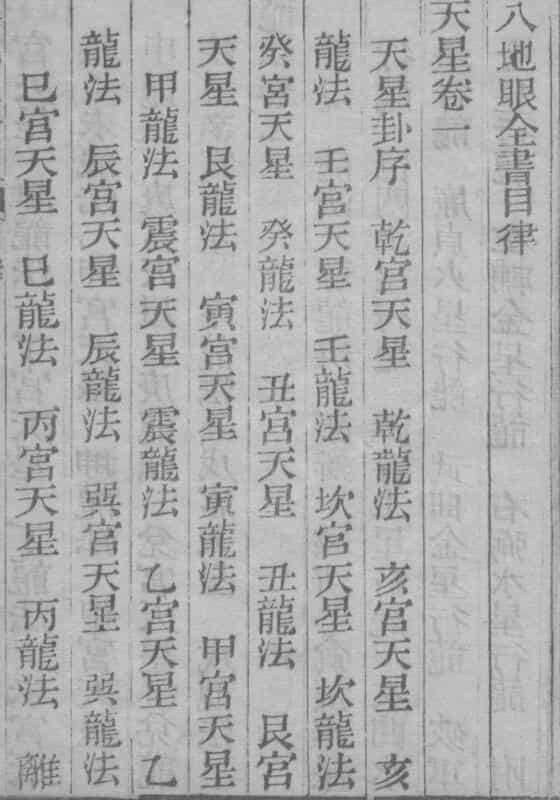 八地眼全書目律
天星卷一
天星卦序 乾宮天星 乾龍法 亥宮天星 亥
龍法 壬宮天星 壬龍法 坎宮天星 坎龍法
癸宮天星 癸龍法 丑宮天星 丑龍法 艮宮
天星 艮龍法 寅宮天星 寅龍法 甲宮天星
甲龍法 震宮天星 震龍法 乙宮天星 乙
龍法 辰宮天星 辰龍法 巽宮天星 巽龍法
巳宮天星 巳龍法 丙宮天星 丙龍法 離